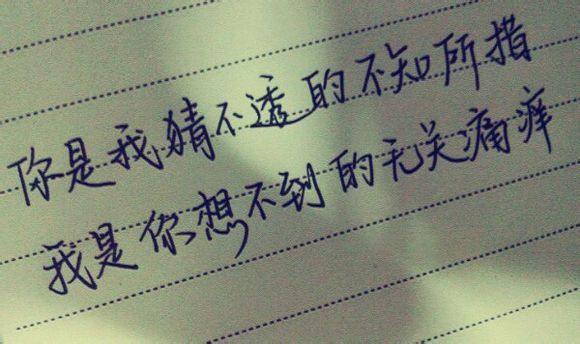 你是我猜不透的不知所措
我是你想不到的无关痛痒